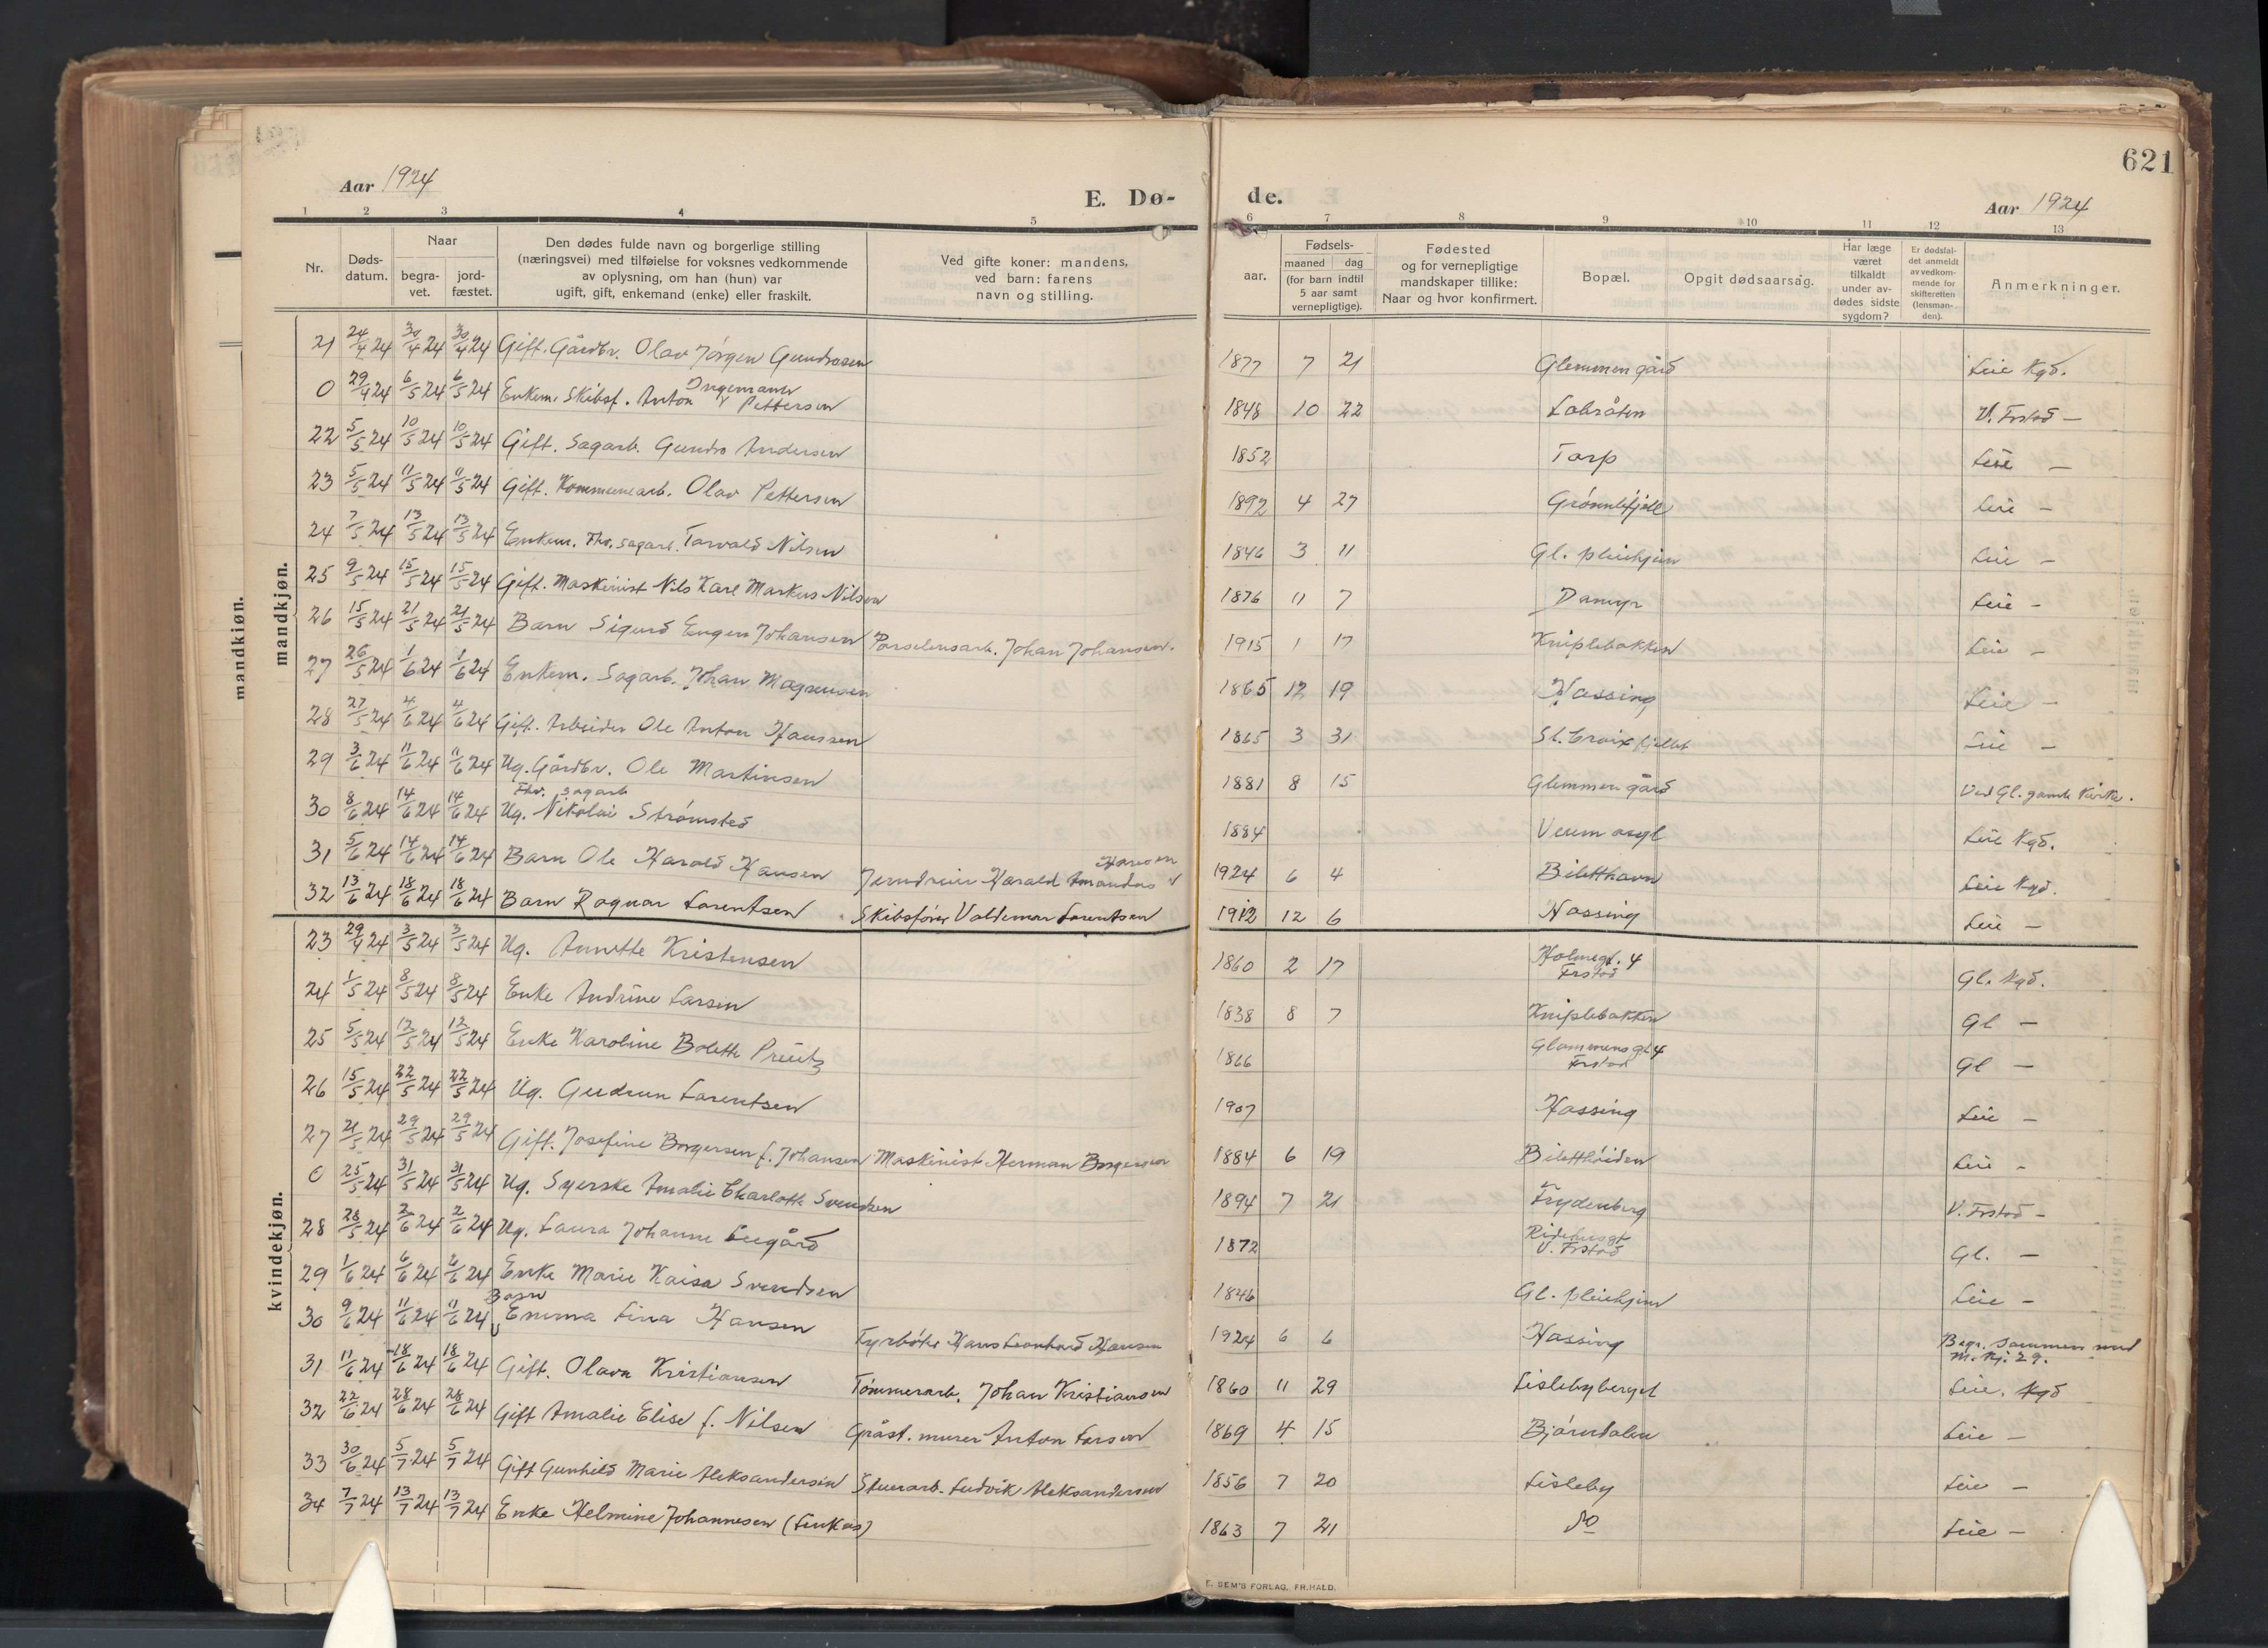 621
Aar 1924
E. Dø-
de.
Aar 1924
1 2 3 4 5 6 7 8 9 10 11 12 13
Nr.
Døds-
datum.
Naar
begra-
vet.
jord-
fæstet.
Den dødes fulde navn og borgerlige stilling
(næringsvei) med tilføielse for voksnes vedkommende
av oplysning, om han (hun) var
ugift, gift, enkemand (enke) eller fraskilt.
Ved gifte koner: mandens,
ved barn: farens
navn og stilling.
aar.
Fødsels-
maaned dag
(for barn indtil
5 aar samt
vernepligtige).
Fødested
og for vernepligtige
mandskaper tillike:
Naar og hvor konfirmert.
Bopæl.
Opgit dødsaarsag.
Har læge
været
tilkaldt
under av-
dødes sidste
sygdom?
Er dødsfal-
det anmeldt
av vedkom-
mende for
skifteretten
(lensman-
den).
Anmerkninger.
mandkjøn.
mandkjøn.
21 24/4 24 30/4 24 30/4 24 Gift. Gårdbr. Olav Jørgen Gundrosen 1877 7 21 Glemmen gård Leie Kgd.
0 29/4 24 6/5 24 6/5 24 Enkem. Skibsf. Anton Ingemann Pettersen 1848 10 22 Labråten V. Frstad —
22 5/5 24 10/5 24 10/5 24 Gift. Sagarb. Gundro Andersen 1852 Torp Leie —
23 5/5 24 11/5 24 11/5 24 Gift. Kommunearb. Olav Pettersen 1892 4 27 Grønnlifjell Leie —
24 7/5 24 13/5 24 13/5 24 Enkem. Fhv. sagarb. Torvald Nilsen 1846 3 11 Gl. pleiehjem Leie —
25 9/5 24 15/5 24 15/5 24 Gift. Maskinist Nils Karl Markus Nilsen 1876 11 7 Damyr Leie —
26 15/5 24 21/5 24 21/5 24 Barn Sigurd Eugen Johansen Porselensarb. Johan Johansen. 1915 1 17 Kniplebakken Leie —
27 26/5 24 1/6 24 1/6 24 Enkem. Sagarb. Johan Magnusen 1865 12 19 Hassing Leie —
28 27/5 24 4/6 24 4/6 24 Gift. Arbeider Ole Anton Hanssen 1865 3 31 St. Croix fjellet Leie —
29 3/6 24 11/6 24 11/6 24 Ug. Gårdbr. Ole Martinsen 1881 8 15 Glemmen gård Ved Gl. gamle Kirke.
30 8/6 24 14/6 24 14/6 24 Ug. Fhv. sagarb Nikolai Strømsted 1884 Veum asyl Leie Kgd.
31 5/6 24 14/6 24 14/6 24 Barn Ole Harald Hansen Jerndreier Harald Amandus Hansen 1924 6 4 Biletthavn Leie Kgd.
32 13/6 24 18/6 24 18/6 24 Barn Ragnar Lorentsen Skibsfører Valdemar Lorentsen 1912 12 6 Hassing Leie —
kvindekjøn.
23 29/4 24 3/5 24 3/5 24 Ug. Annette Kristensen 1860 2 17 Holmegt. 4 Frstad Gl. Kgd.
24 1/5 24 8/5 24 8/5 24 Enke Andrine Larsen 1838 8 7 Kniplebakken Gl —
25 5/5 24 12/5 24 12/5 24 Enke Karoline Bolette Preutz 1866 Glommensgt 4 Frstad Gl —
26 15/5 24 22/5 24 22/5 24 Ug. Gudrun Lorentsen 1907 Hassing Leie —
27 21/5 24 29/5 24 29/5 24 Gift. Josefine Borgersen f. Johansen Maskinist Herman Borgersen 1884 6 19 Biletthøiden Leie —
0 25/5 24 31/5 24 31/5 24 Ug. Syerske Amalie Charlotte Svendsen 1894 7 21 Frydenberg V. Frstad —
28 28/5 24 2/6 24 2/6 24 Ug. Laura Johanne Leegård 1872 Ridehusgt V. Frstad Gl. —
29 1/6 24 6/6 24 6/6 24 Enke Marie Kaisa Svendsen 1846 Gl. pleiehjem Leie —
30 9/6 24 11/6 24 11/6 24 Barn Emma Lina Hansen Fyrbøter Hans Leonhard Hansen 1924 6 6 Hassing Begr. sammen med M. Kj. 29.
31 11/6 24 18/6 24 18/6 24 Gift. Olava Kristiansen Tømmerarb. Johan Kristiansen 1860 11 29 Lislebyberget Leie. Kgd
32 22/6 24 28/6 24 28/6 24 Gift Amalie Elise f. Nilsen Gråst. murer Anton Larsen 1869 4 15 Bjørndalen Leie —
33 30/6 24 5/7 24 5/7 24 Gift Gunhild Marie Aleksandersen Stuerarb. Ludvik Aleksandersen 1856 7 20 Lisleby Leie —
34 7/7 24 13/7 24 13/7 24 Enke Helmine Johannesen (Lukas) 1863 7 21 do Leie —
E. SEM'S FORLAG, FR.HALD.